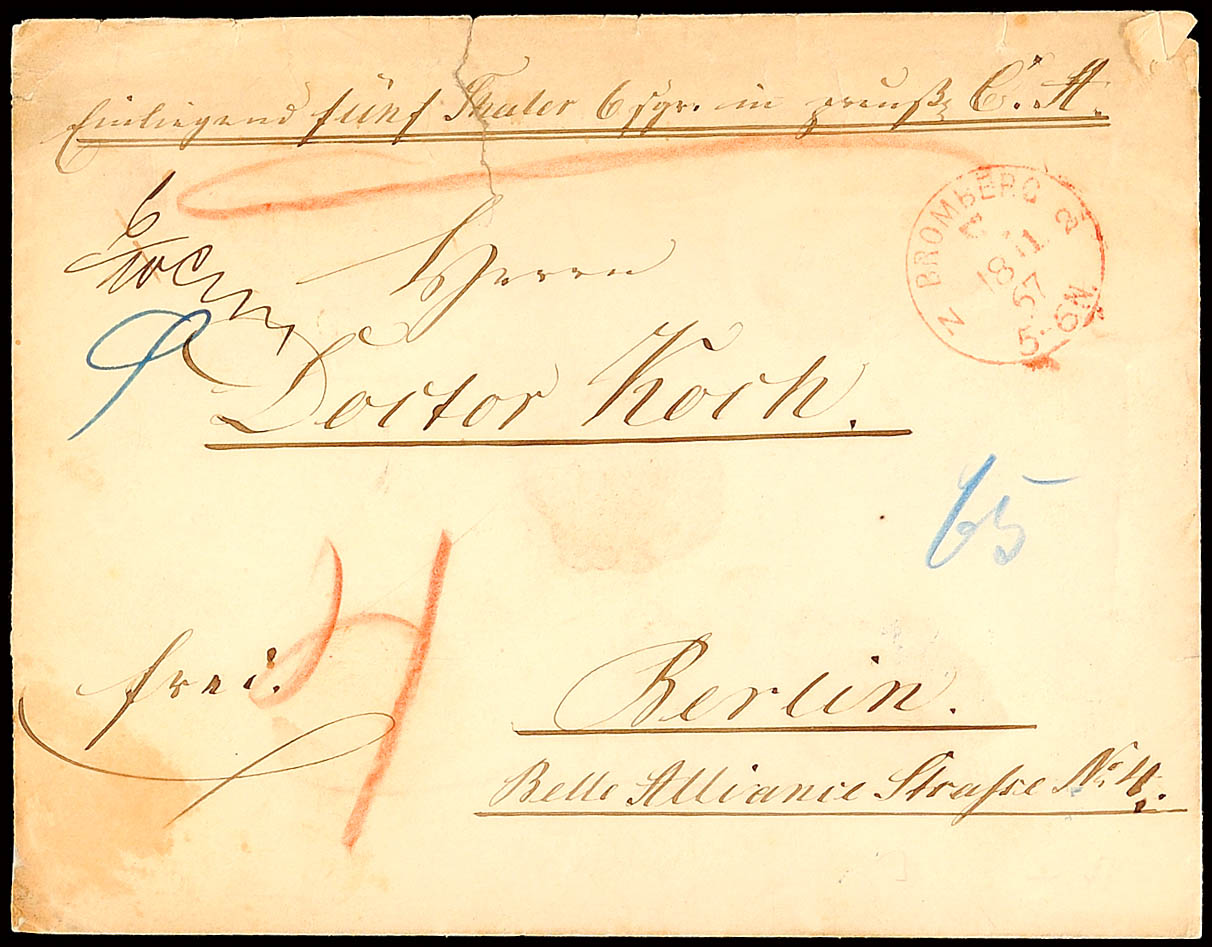 Einliegend fünf Thaler 6 sgr. in preuß C. A.
BROMBERG
18 11
57
5-6N.
Herrn
Doctor Koch.
65
4
frei.
Berlin.
Belle Alliance Straſse No 4.